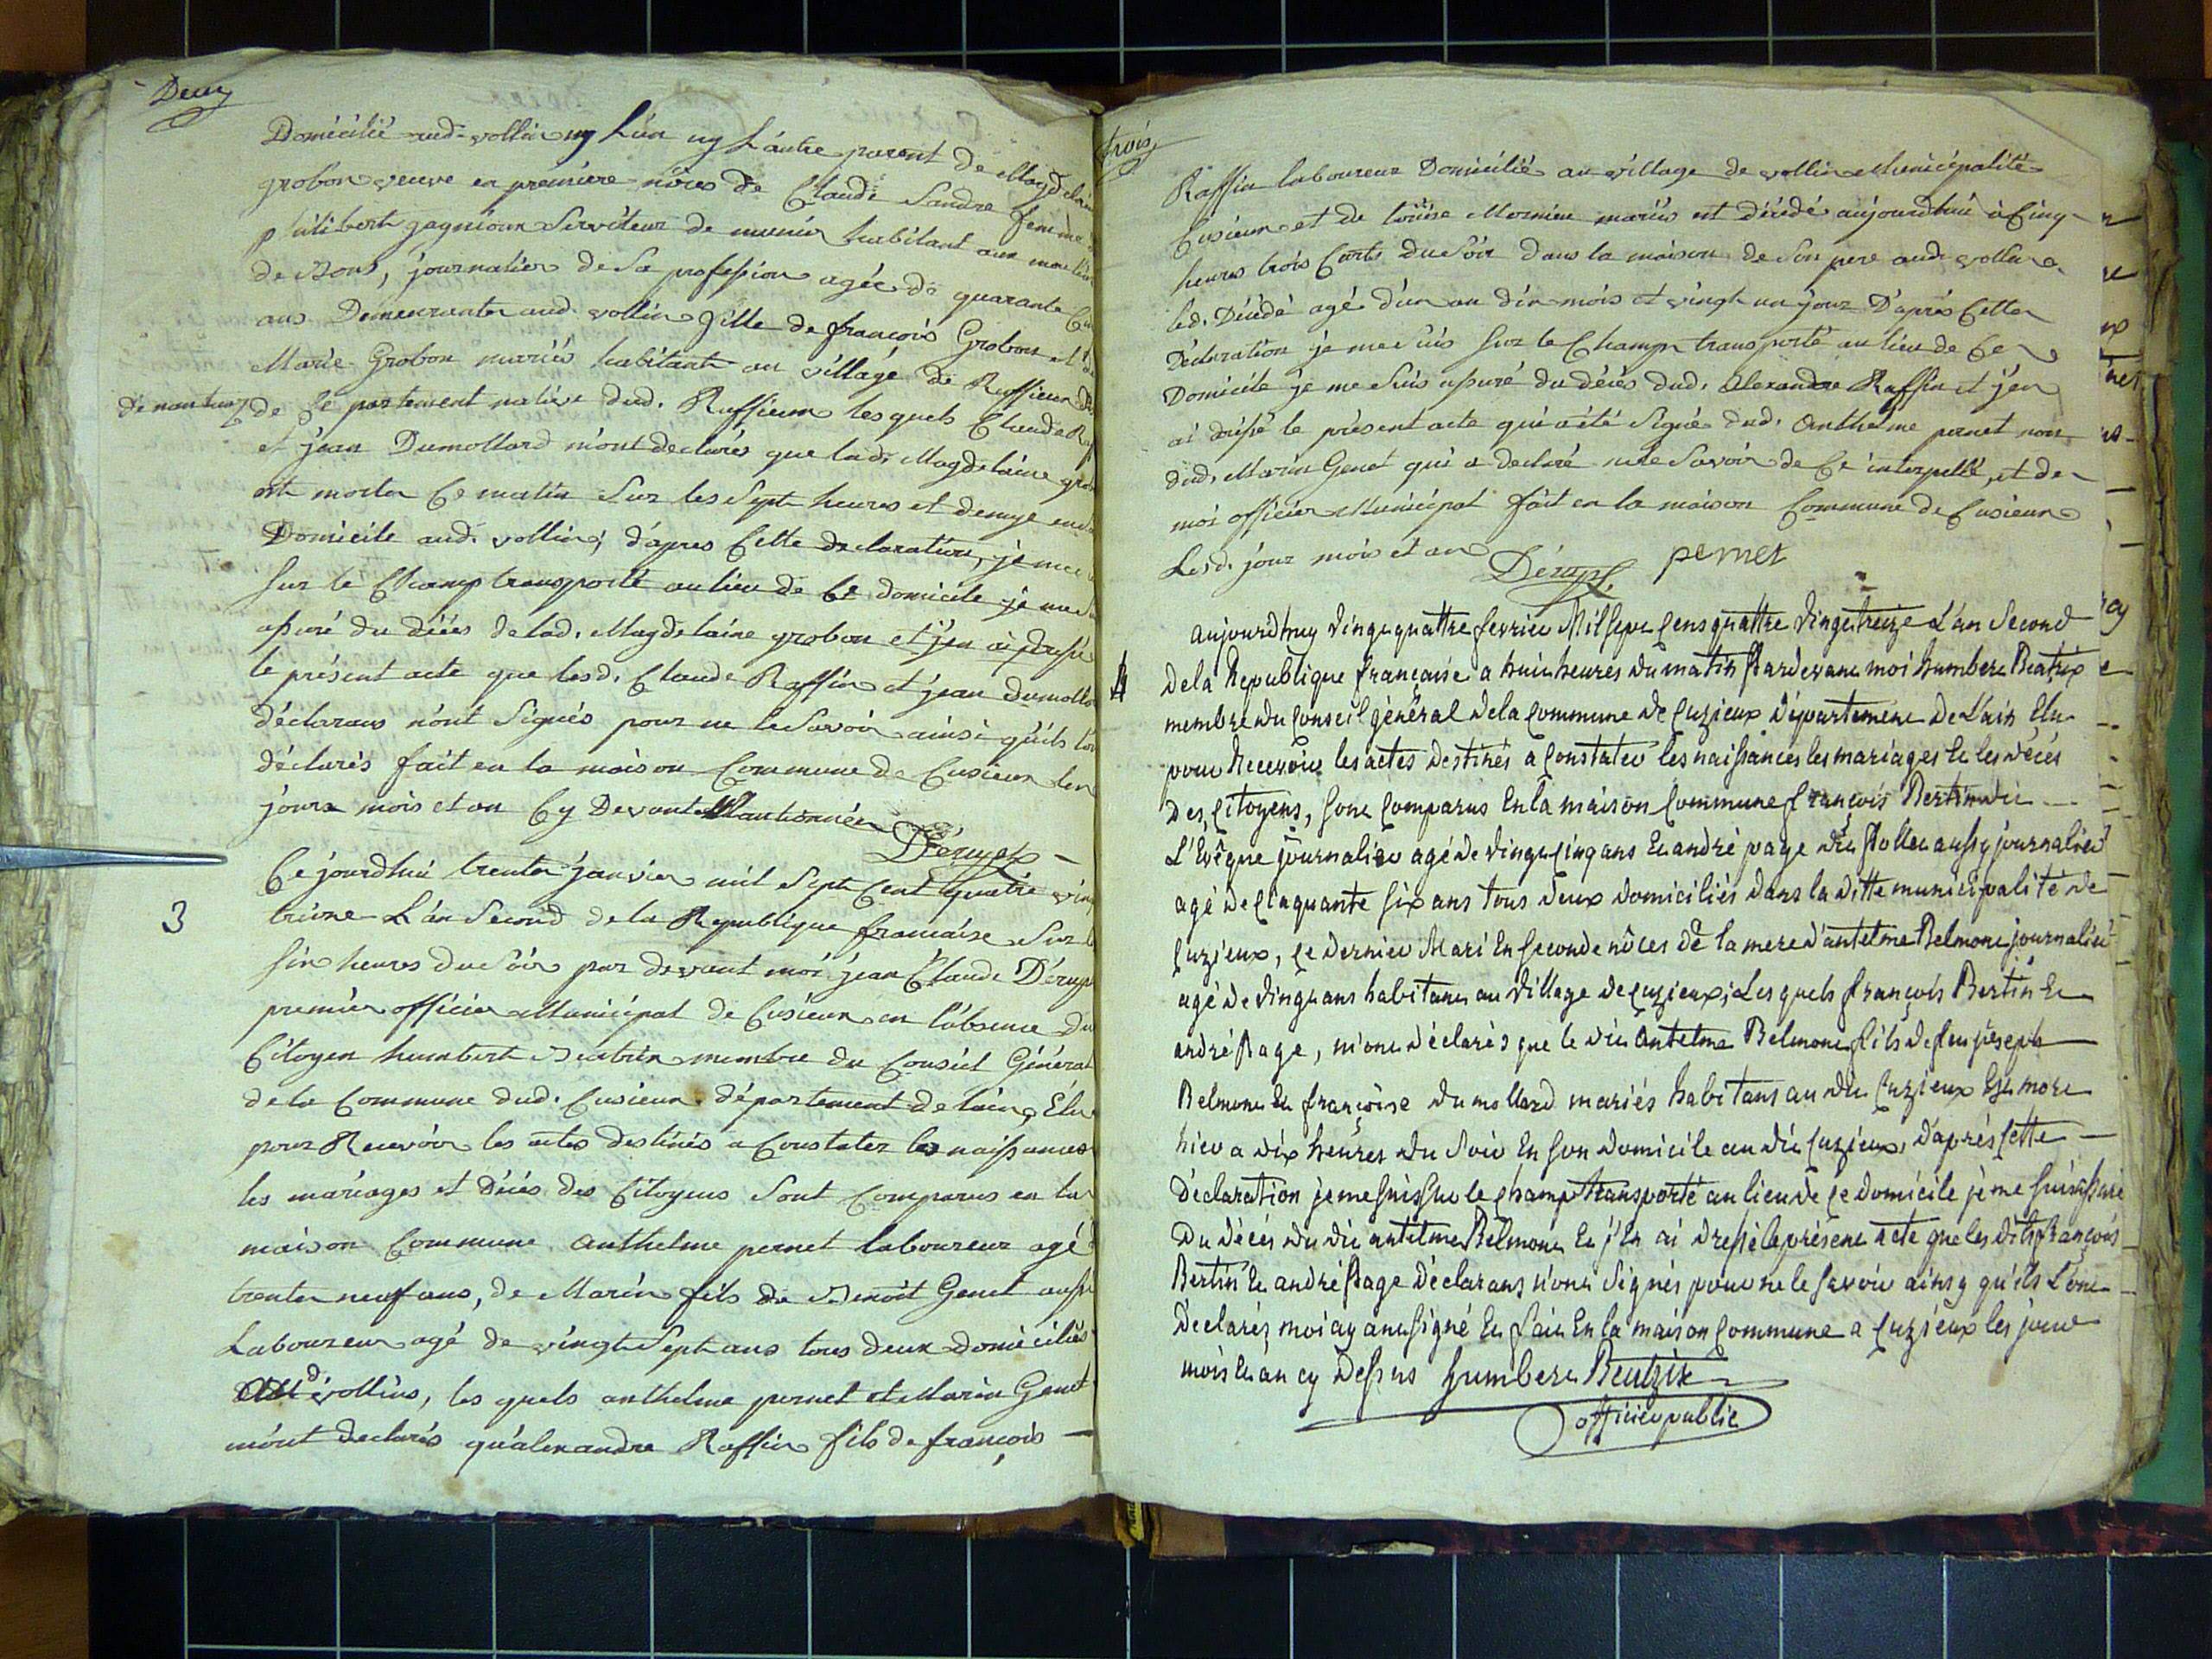 Deux
Domicilié aud. vollin ny L'un ny L'autre parent de Magdelaine
grobon veuve en première nôces de Claude Sandre femme
philibert gagnioux Serviteur de meunier habitant aux moulins
de Bons, journalier de Sa profession agée de quarante
ans Demeurante aud. vollin fille de françois Grobon et de
Marie Grobon mariés habitants au village de Ruffieux
de nantua
de Je partement native dud. Ruffieux les quels Claude
et jean Dumollard m'ont declarés que lad. Magdelaine
est morte Ce matin Sur les Sept heures et demye
Domicile aud. vollin, d'apres Cette declaration, je me
Sur le Champ transporté au lieu de Ce domicile je me
assuré du décés de lad. Magdelaine grobon et j'en ai dressé
le présent acte que lesd. Claude Raffin et jean dumollard
déclarans n'ont Signés pour ne le Savoir ainsi qu'ils
déclarés fait en la maison Commune de Cusieux les
jours mois et an Cy Devant Mantionnés
Déruys
3
Ce jourdhui trente janvier mil Sept Cent quatre vingt
treize L'an Second de la Republique francaise Sur
Six heures du Soir par devant moi jean Claude Déruys
premier officier Municipal de Cusieux en l'absence du
Citoyen humbert Beatrix membre du Conseil Général
de la Commune dud. Cusieux département de lain, Élu
pour Recevoir les actes destinés a Constater les naissances
les mariages et décés des Citoyens Sont Comparus en la
maison Commune anthelme pernet laboureur agé
trente neuf ans, de Marin fils de Benoit Genet aussi
Laboureur agé de vingt Sept ans tous deux domiciliés
aud. vollins, les quels anthelme pernet et Marin Genet
m'ont declarés qu'alexandre Raffin fils de françois
trois
Raffin laboureur Domicilié au village de vollin Municipalité
Cusieux et de Loüise Mornieu mariés est décédé aujourdhui à Cinq
heures trois Carts du Soir dans la maison de Son pere aud. vollin
led. Décédé agé d'un an dix mois et vingt un jour D'aprés Cette
Déclaration je me Suis Sur le Champ transporté au lieu de Ce
Domicile je me Suis assuré du décés dud. Alexandre Raffin et j'en
ai dréssé le présent acte qui a été Signé dud. Anthelme pernet non
dud. Marin Genet qui a declaré ne le Savoir de Ce interpellé, et de
moi officier Municipal fait en la maison Commune de Cusieux
Lesd. jour mois et an Déruys pernet
4
aujourdhuy vingt quattre fevrier Mil Sept Cens quattre vingt treize L'an Second
de la Republique française a huit heures du matin Pardevant moi humbert Beatrix
membre du Conseil général de la Commune de Cuzieux département De L'ain Elu
pour Recevoir les actes destinés a Constater les naissances les mariages Et les décés
Des Citoyens, Sont Comparus En la maison Commune françois Bertin dit
L'Evêque journalier agé de vingt Cinq ans Et andré page dit Pollet aussy journalier
agé de Cinquante Six ans tous deux domiciliés dans la ditte municipalité de
Cuzieux, Ce dernier Mari En Seconde nôces de la mere d'antelme Belmont journalier
agé de vingt ans habitant au village de Cuzieux; Les quels françois Bertin Et
andré Page, m'ont déclarés que le dit Antelme Belmont fils de feu joseph
Belmont Et françoise dumollard mariés habitans au dit Cuzieux Est mort
hier a dix heures du Soir En Son domicile au dit Cuzieux, d'aprés Cette
déclaration je me Suis Sur le Champ transporté au lieu de Ce domicile je me Suis assuré
Du décés du dit antelme Belmont Et j'En ai dressé le présent acte que les dits françois
Bertin Et andré Page déclarans n'ont Signés pour ne le Savoir ainsy qu'ils L'ont
Declarés moi ayant Signé Et fait En la maison Commune a Cuzieux les jour
mois Et an cy Dessus humbert Beatrix
officier public